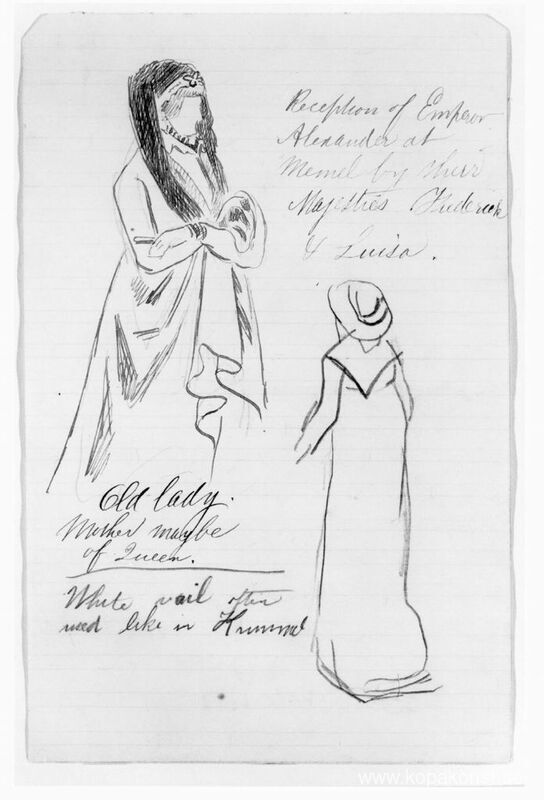 Reception of Emperor
Alexander at
Memel by their
Majesties Frederick
& Luisa.
Old lady.
Mother maybe
of Queen.
White vail often
used like in
www.kopakonst